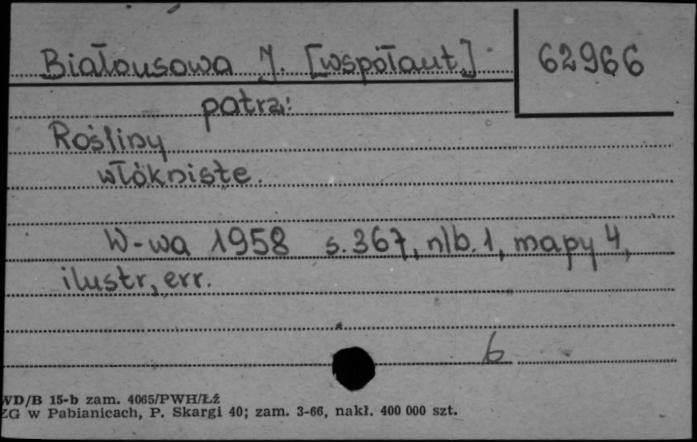 Białousowa J. [współaut.] 62966
patrz:
Rośliny
włókniste.
W-wa 1958 s. 367, nlb. 1, mapy 4,
ilustr, err.
6
WD/B 15-b zam. 4065/PWH/Łź
ZG w Pabianicach, P. Skargi 40; zam. 3-66, nakł. 400 000 szt.